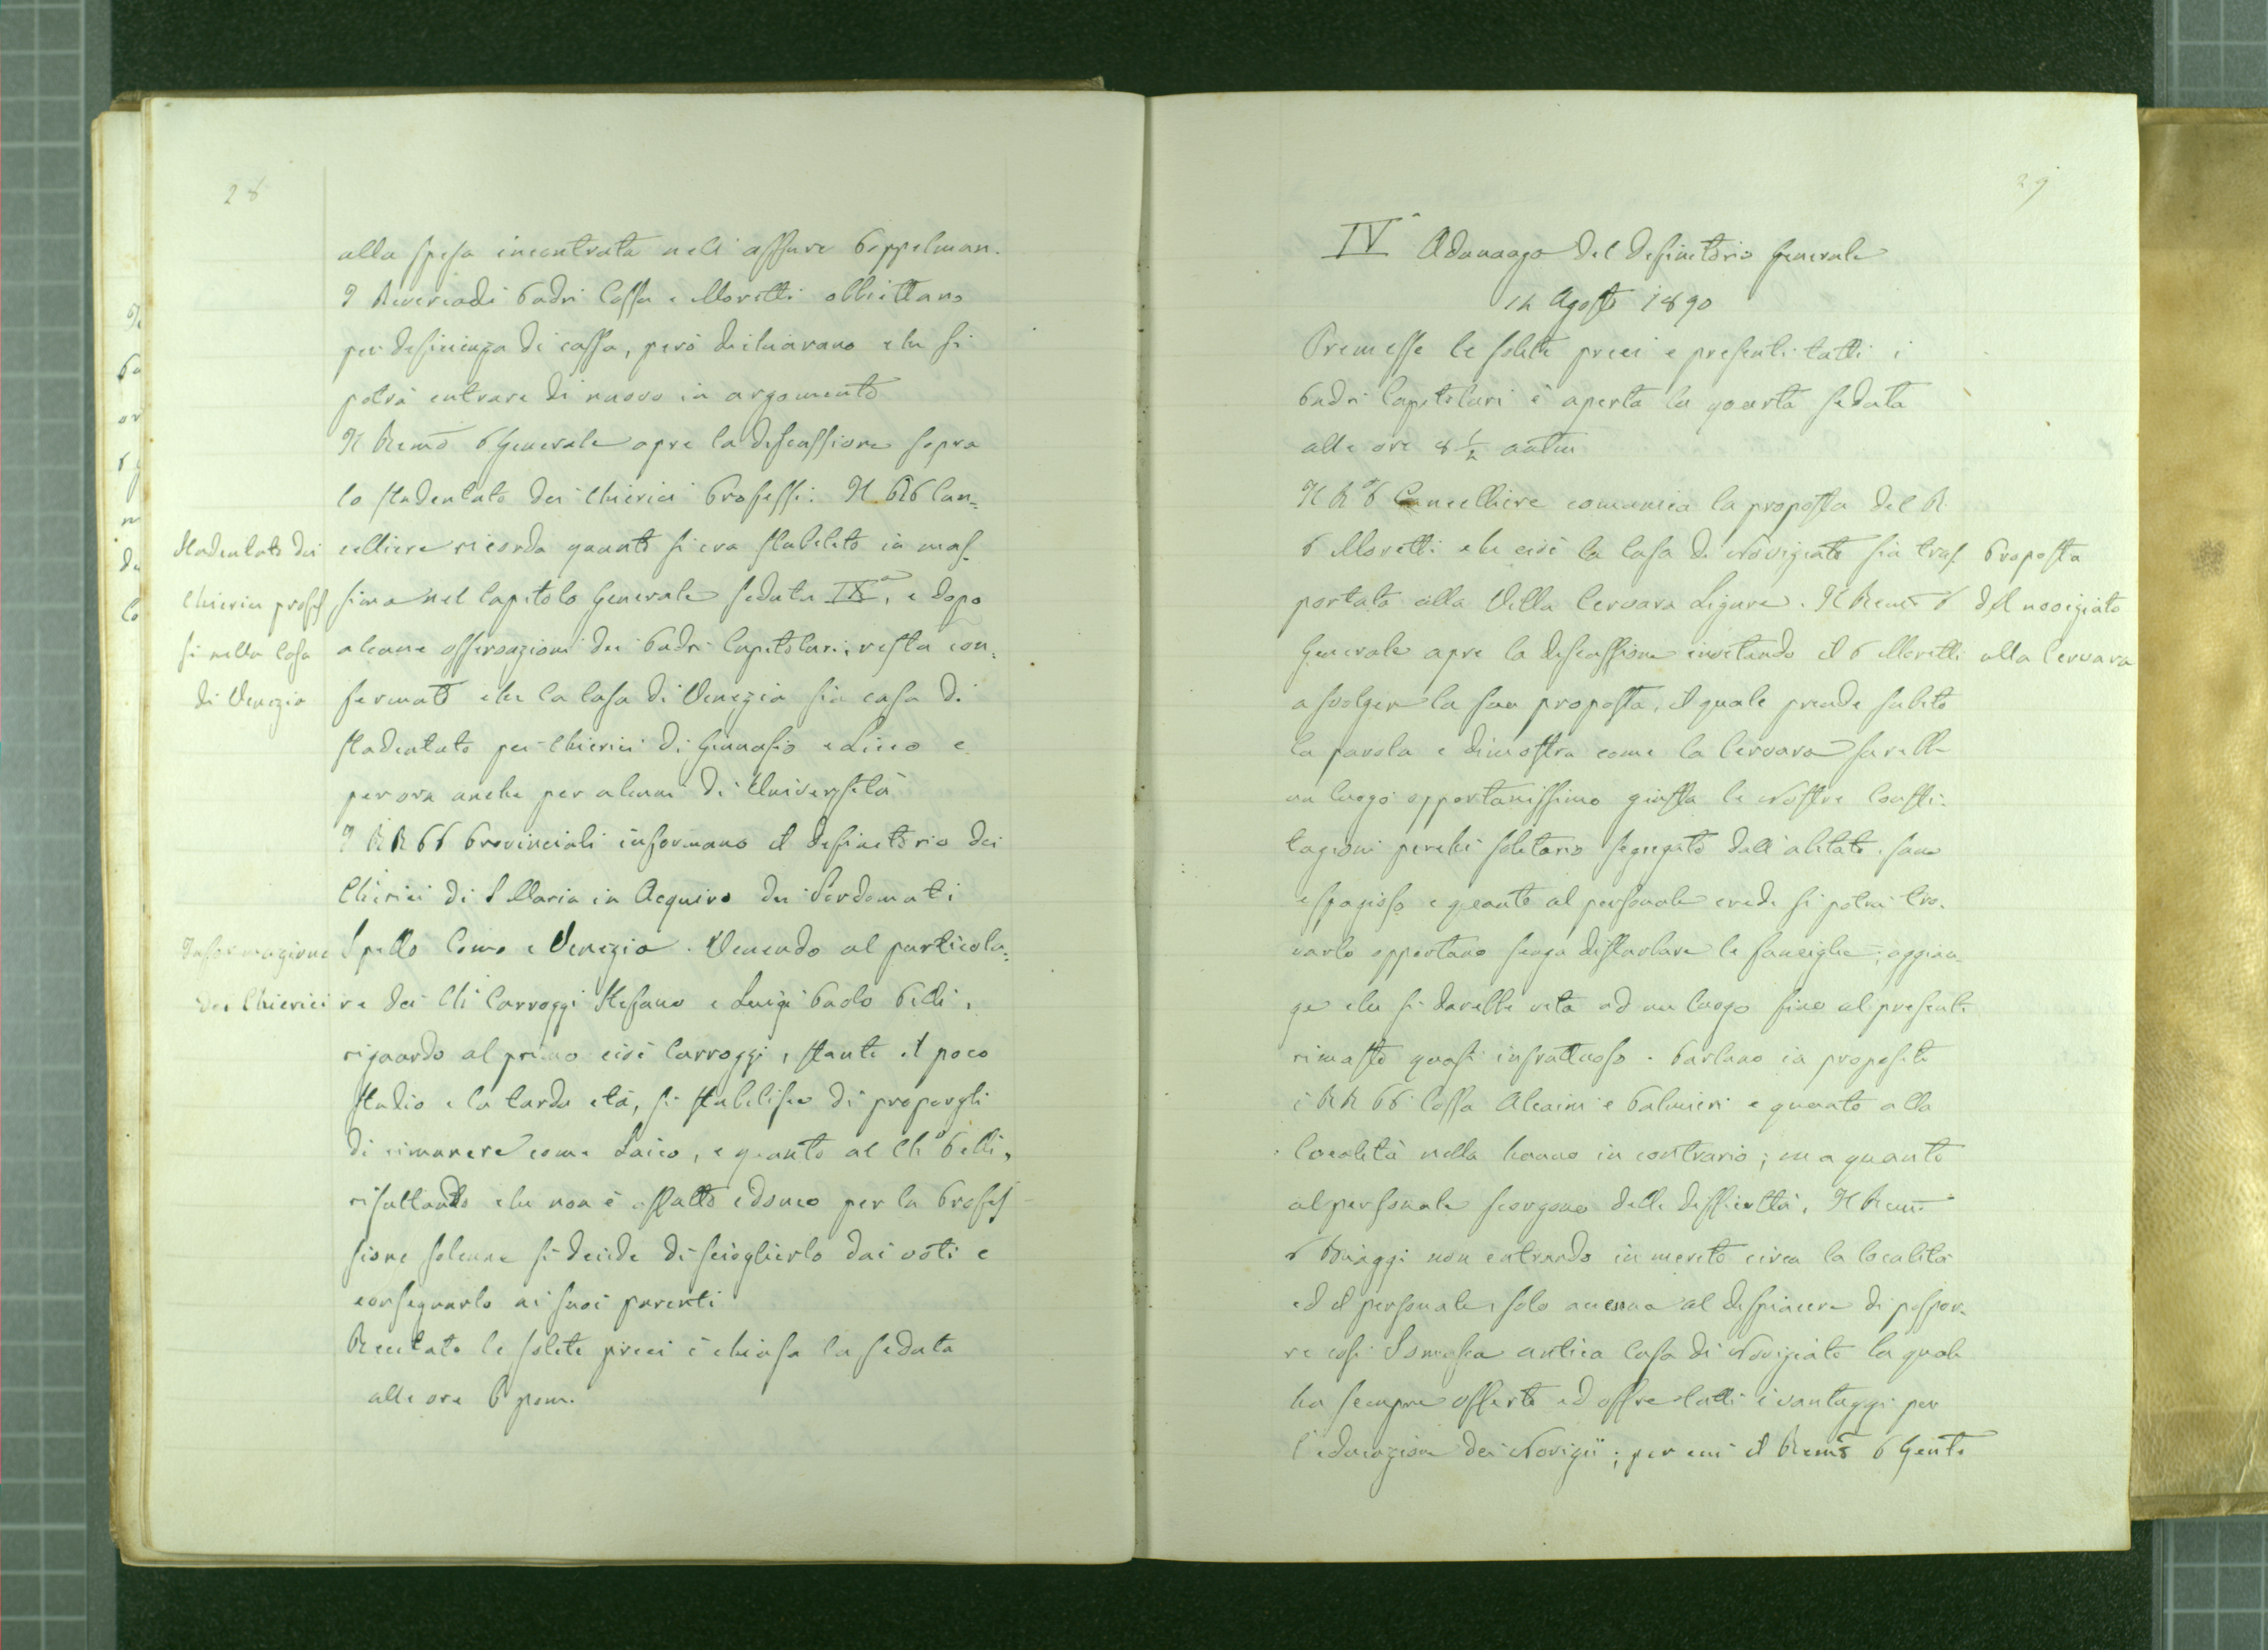 28
alla spesa incontrata nell'affare Poppelman.
I Reverendi Padri Cossa e Moretti obbiettano
per deficienza di cassa, però dichiarano che si
potrà entrare di nuovo in argomento
Il Remo P Generale apre la discussione sopra
lo studentato dei Chierici Professi: Il RP Can=
celliere ricorda quanto si era stabilito in mas=
sima nel Capitolo Generale seduta IXa, e dopo
alcune osservazioni dei Padri Capitolari, resta con=
fermato che la Casa di Venezia sia casa di
studentato per Chierici di Ginnasio e Liceo e
per ora anche per alunni di Università
I RR PP Provinciali informano il Definitorio dei
Chierici di S Maria in Aequiro dei Sordomuti
Spello Como e Venezia. Venendo al particola=
re dei Chi Carroggi Stefano e Luigi Paolo Pelli,
riguardo al primo cioè Carroggi, stante il poco
studio e la tarda età, si stabilisce di proporgli
di rimanere come Laico, e quanto al Cho Pelli,
risultando che non è affatto idoneo per la Profes
sione solenne si decide di scioglierlo dai voti e
consegnarlo ai suoi parenti
Recitate le solite preci è chiusa la seduta
alle ore 6 pom.
Studentato dei
Chierici profes
si nella Casa
di Venezia
Informazione
dei Chierici
29
IVa Adunanza del Definitorio Generale
14 Agosto 1890
Premesse le solite preci e presenti tutti i
Padri Capitolari è aperta la quarta seduta
alle ore 8 1/2 antim
Il R P Cancelliere comunica la proposta del R
P Moretti che cioè la Casa di Noviziato sia tras
portata alla Villa Cervara Ligure. Il Remo P
Generale apre la discussione invitando il P Moretti
a svolger la sua proposta, il quale prende subito
la parola e dimostra come la Cervara sarebbe
un luogo opportunissimo giusta le Nostre Costi=
tuzioni perchè solitario segregato dall'abitato, sano
e spazioso e quanto al personale crede si potrà tro=
varlo opportuno senza disturbare le famiglie; aggiun=
ge che si darebbe vita ad un luogo fino al presente
rimasto quasi infruttuoso. Parlano in proposito
i RR PP Cossa Alcaini e Palmieri e quanto alla
località nulla hanno in contrario; ma quanto
al personale scorgono delle difficoltà. Il Remo
P Biaggi non entrando in merito circa la località
ed il personale, solo accenna al dispiacere di pospor=
re così Somasca antica Casa di Noviziato la quale
ha sempre offerto ed offre tutti i vantaggi per
l'educazione dei Novizii; per cui il Remo P Gente
Proposta
del noviziato
alla Cervara